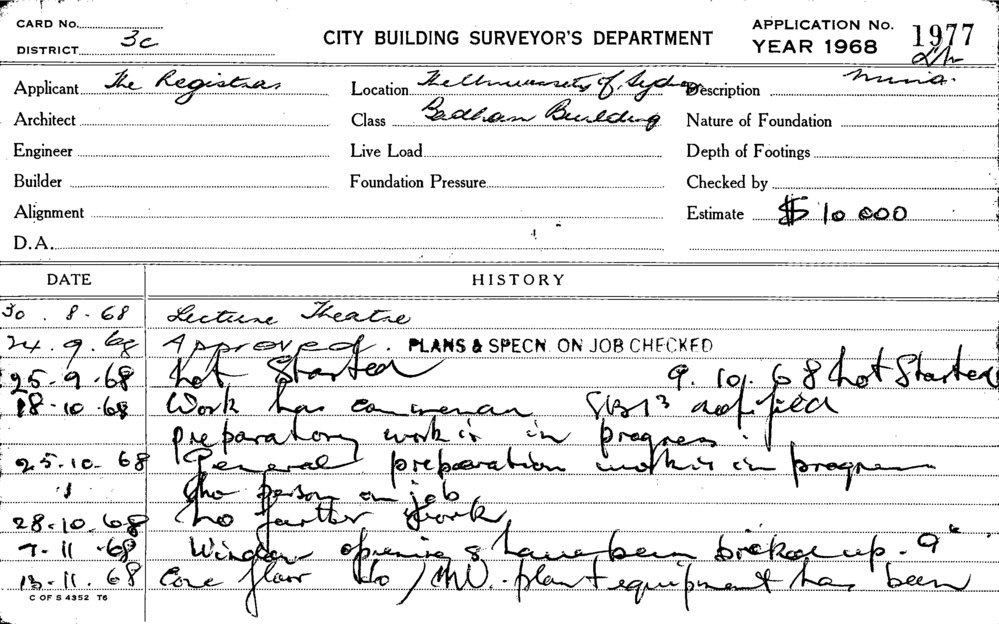 CARD No.
DISTRICT 3c
CITY BUILDING SURVEYOR'S DEPARTMENT
APPLICATION No. 1977
YEAR 1968
Applicant The Registrar
Location The University of Sydney
Description
Architect
Class Badham Building
Nature of Foundation
Engineer
Live Load
Depth of Footings
Builder
Foundation Pressure
Checked by
Alignment
Estimate $10 000
D.A.
DATE HISTORY
30.8.68 Lecture Theatre
24.9.68 Approved. PLANS & SPECN. ON JOB CHECKED
25.9.68 Not Started 9.10.68 Not Started
18.10.68 Work has notified
preparatory work is in progress.
25.10.68 General preparation work is in progress
No person on job
28.10.68 No further work
7.11.68 Window openings have been bricked up. 9"
13.11.68 floor to plant equipment has been
C OF S 4352 T6